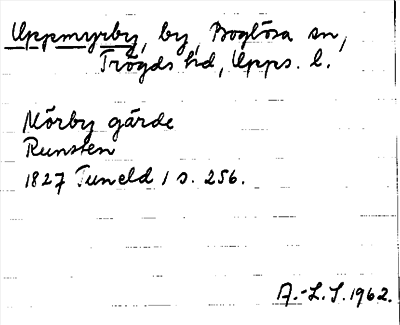 Uppmyrby, by, Boglösa sn,
Trögds hd, Upps. l.
Mörby gärde
Runsten
1827 Tuneld 1 s. 256.
A.-L.S. 1962.